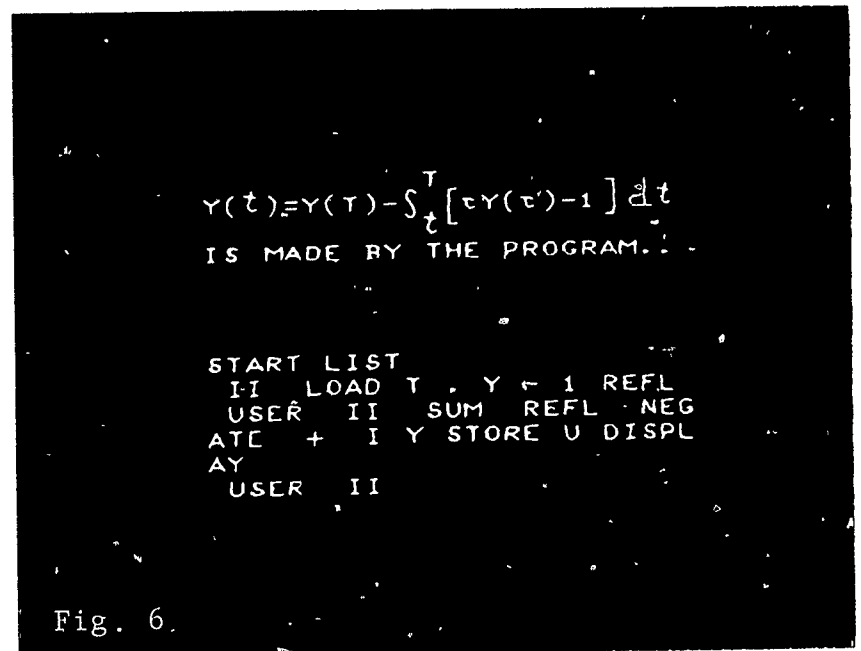 Y(t)=Y(T)-∫_t^T[τY(τ)-1]dt
IS MADE BY THE PROGRAM.
START LIST
II LOAD T . Y ← 1 REFL
USER II SUM REFL NEG
ATE + I Y STORE U DISPL
AY
USER II
Fig. 6.